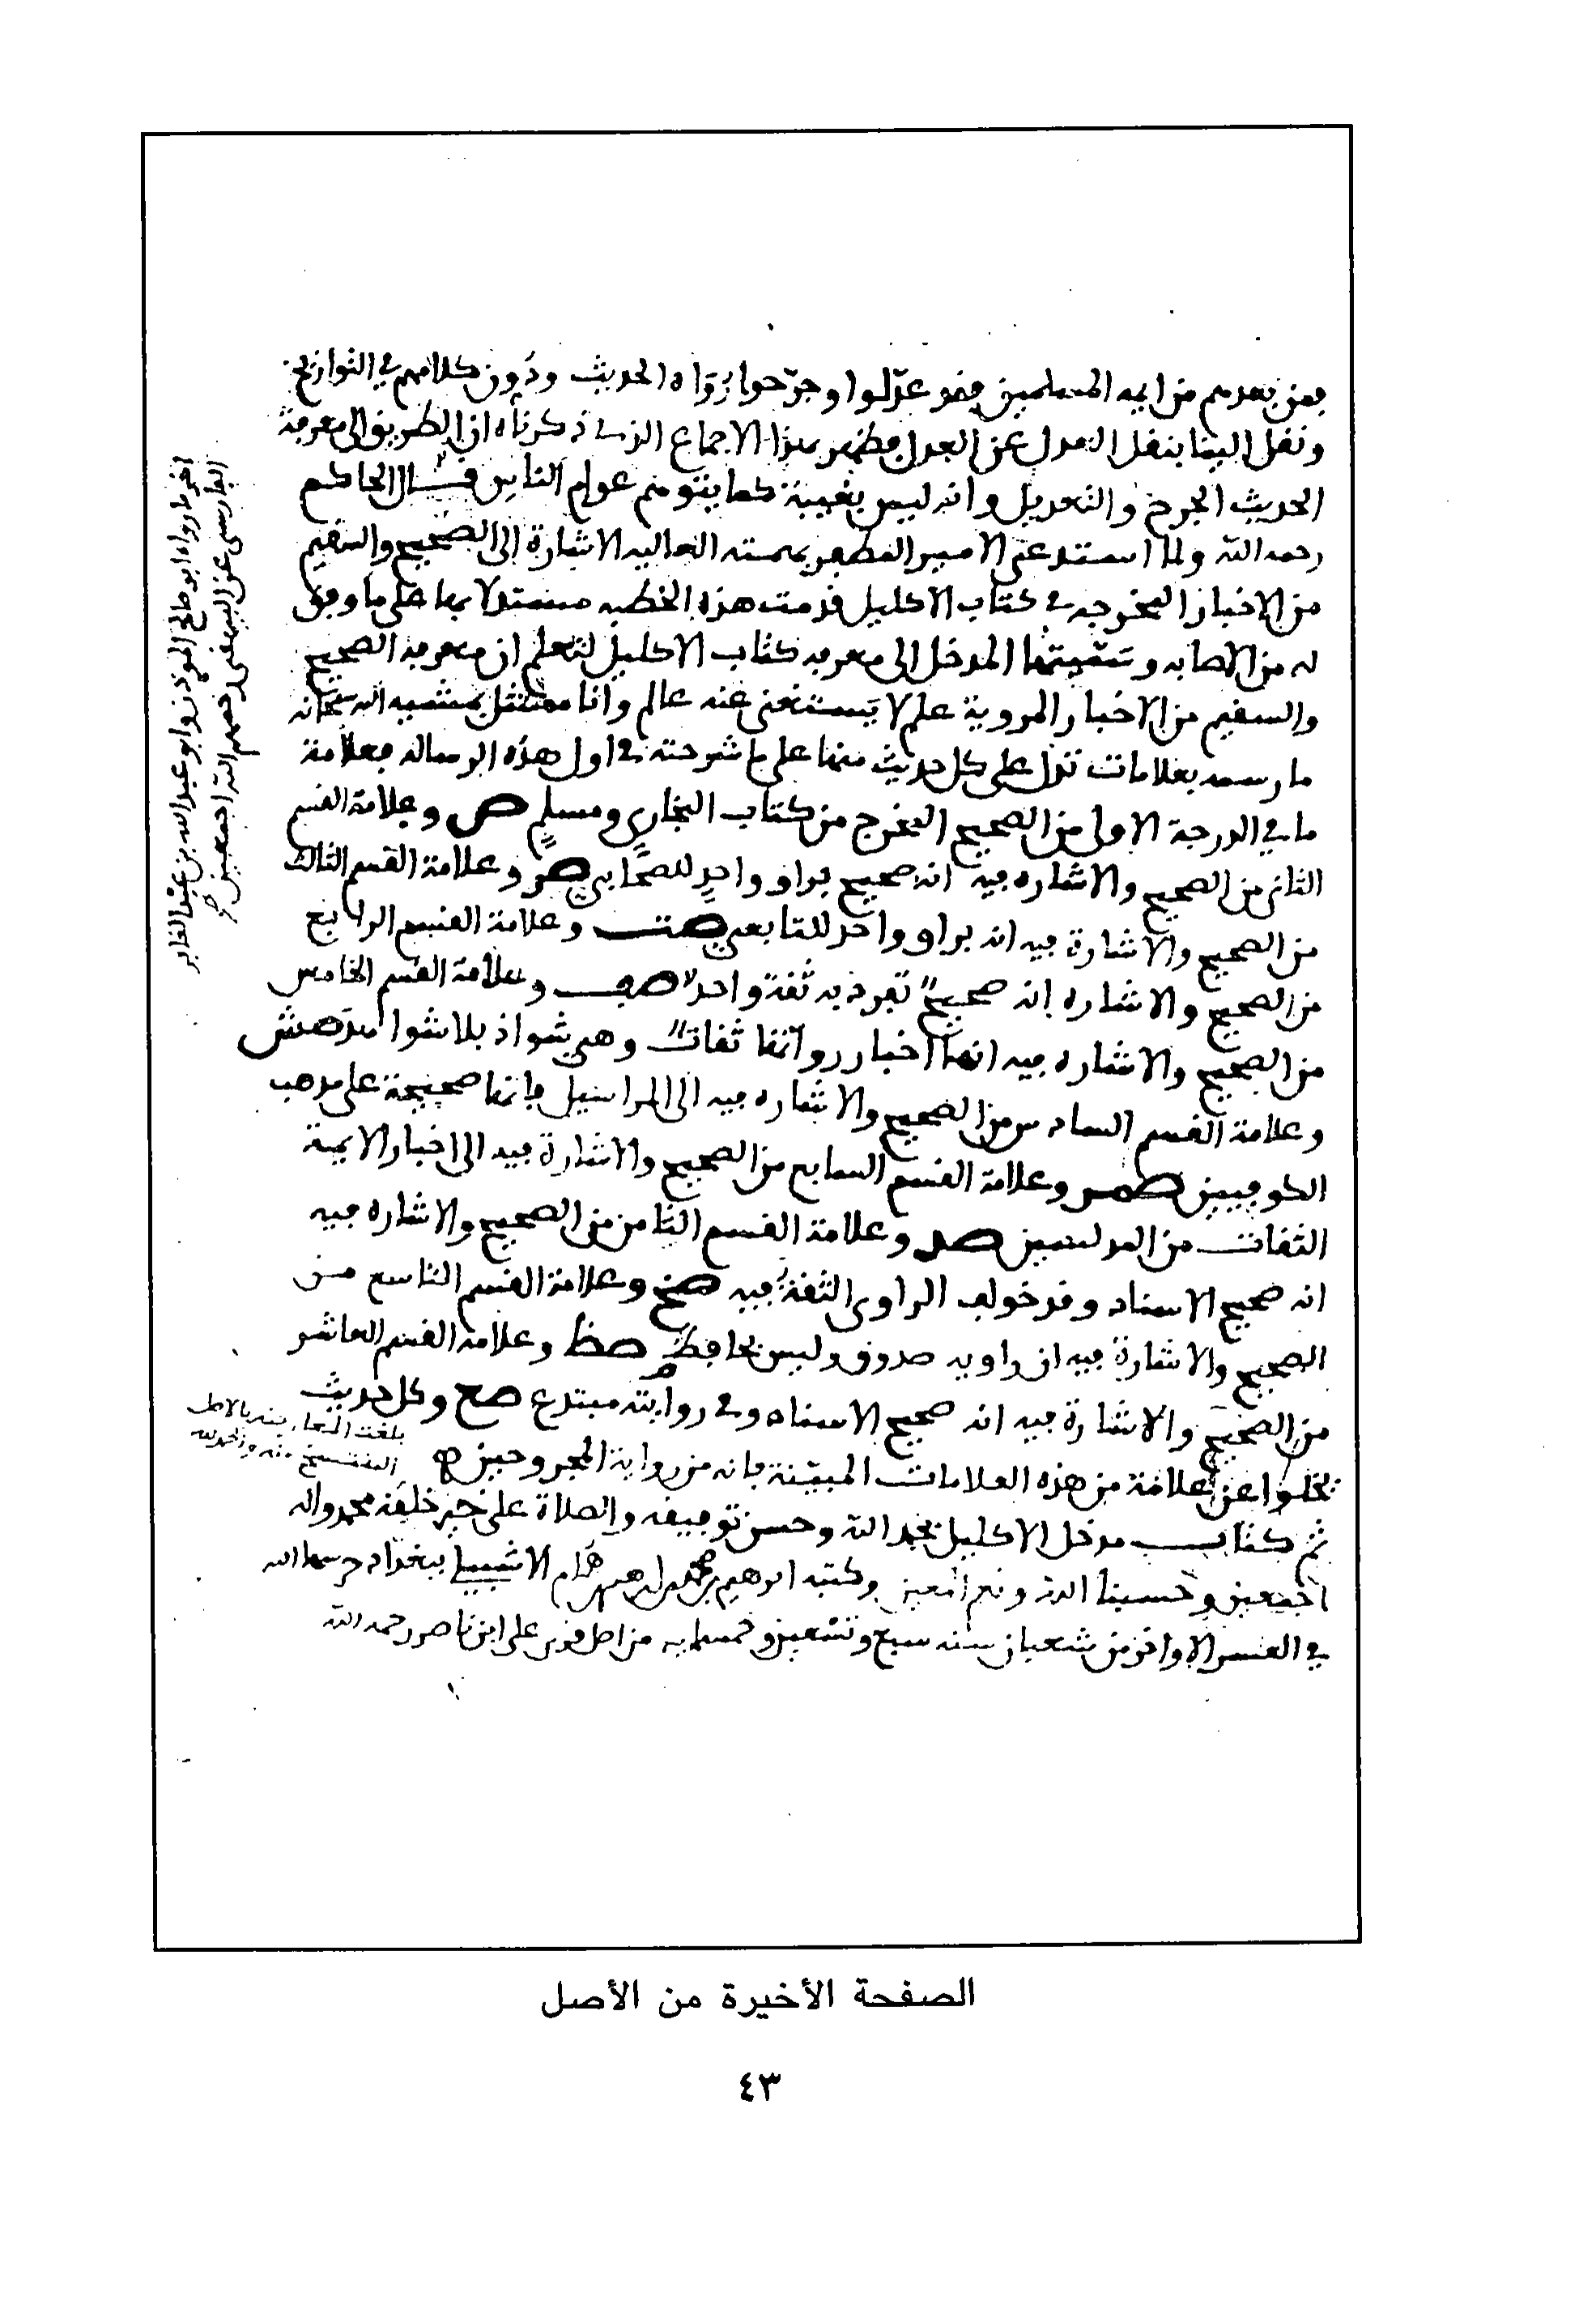 فمن بعدهم من ايمه المسلمين فقد عدّلوا وجرّحوا رُوَاه الحديث ودُوّن كلامهم في التواريخ
ونقل الينا بنقل العدل عن العدل فظهر بهذا الاجماع الذي ذكرناه ان الطريق الى معرفة
الحديث الجرح والتعديل وانه ليس بغيبة كما يتوهم عوام الناس قال الحاكم
رحمه الله ولما استدعى الامير المظفر بهمته العاليه الاشارة الى الصحيح والسقيم
من الاخبار المخرجه في كتاب الاكليل قدمت هذه الخطبه مستدلا بها على ما وفق
له من الاصابه وسميتها المدخل الى معرفه كتاب الاكليل لتعلم ان معرفه الصحيح
والسقيم من الاخبار المروية علم لا يستغنى عنه عالم وانا ممتثل بمشيه الله سبحانه
ما رسمه بعلامات تدل على كل حديث منها على ما شرحته في اول هذه الرساله فعلامة
ما في الدرجة الاولى من الصحيح المخرج من كتاب البخاري ومسلم ص وعلامة القسم
الثاني من الصحيح والاشاره فيه انه صحيح براو واحدٍ للصحابي صر وعلامة القسم الثالث
من الصحيح والاشارة فيه انه براو واحد للتابعي صت وعلامة القسم الرابع
من الصحيح والاشاره انه صحيح تفرد به ثقة واحد صف وعلامة القسم الخامس
من الصحيح والاشاره فيه انها اخبار رواتها ثقات وهي شواذ بلا شواهد صش
وعلامة القسم السادس من الصحيح والاشاره فيه الى المراسيل فانها صحيحة على مذهب
الكوفيين صمر وعلامة القسم السابع من الصحيح والاشارة فيه الى اخبار الايمة
الثقات من المدلسين صد وعلامة القسم الثامن من الصحيح والاشاره فيه
انه صحيح الاسناد وقد خولف الراوي الثقة فيه صخ وعلامة القسم التاسع من
الصحيح والاشارة فيه ان راويه صدوق وليس بحافظ صظ وعلامة القسم العاشر
من الصحيح والاشارة فيه انه صحيح الاسناد وفي روايته مبتدع صح وكل حديث
يخلوا عن علامة من هذه العلامات المبيّنة فانه من رواية المجروحين
تم كتاب مدخل الاكليل بحمد الله وحسن توفيقه والصلاة على خير خلقه محمد واله
اجمعين وحسبنا الله ونعم المعين وكتبه ابرهيم بن محمد بن ابرهيم ببغداد حرسها الله
في العشر الاواخر من شعبان سنه سبع وتسعين وخمسمايه من اصل قوبل على ابن ناصر رحمه الله
اخر ما رواه ابو صالح الموذن وابو عبد الله بن عبد الغافر
الفارسي عن البيهقي رحمهم الله اجمعين
بلغت المعارضه بالاصل
المنتسخ منه والحمد لله
الصفحة الأخيرة من الأصل
٤٣